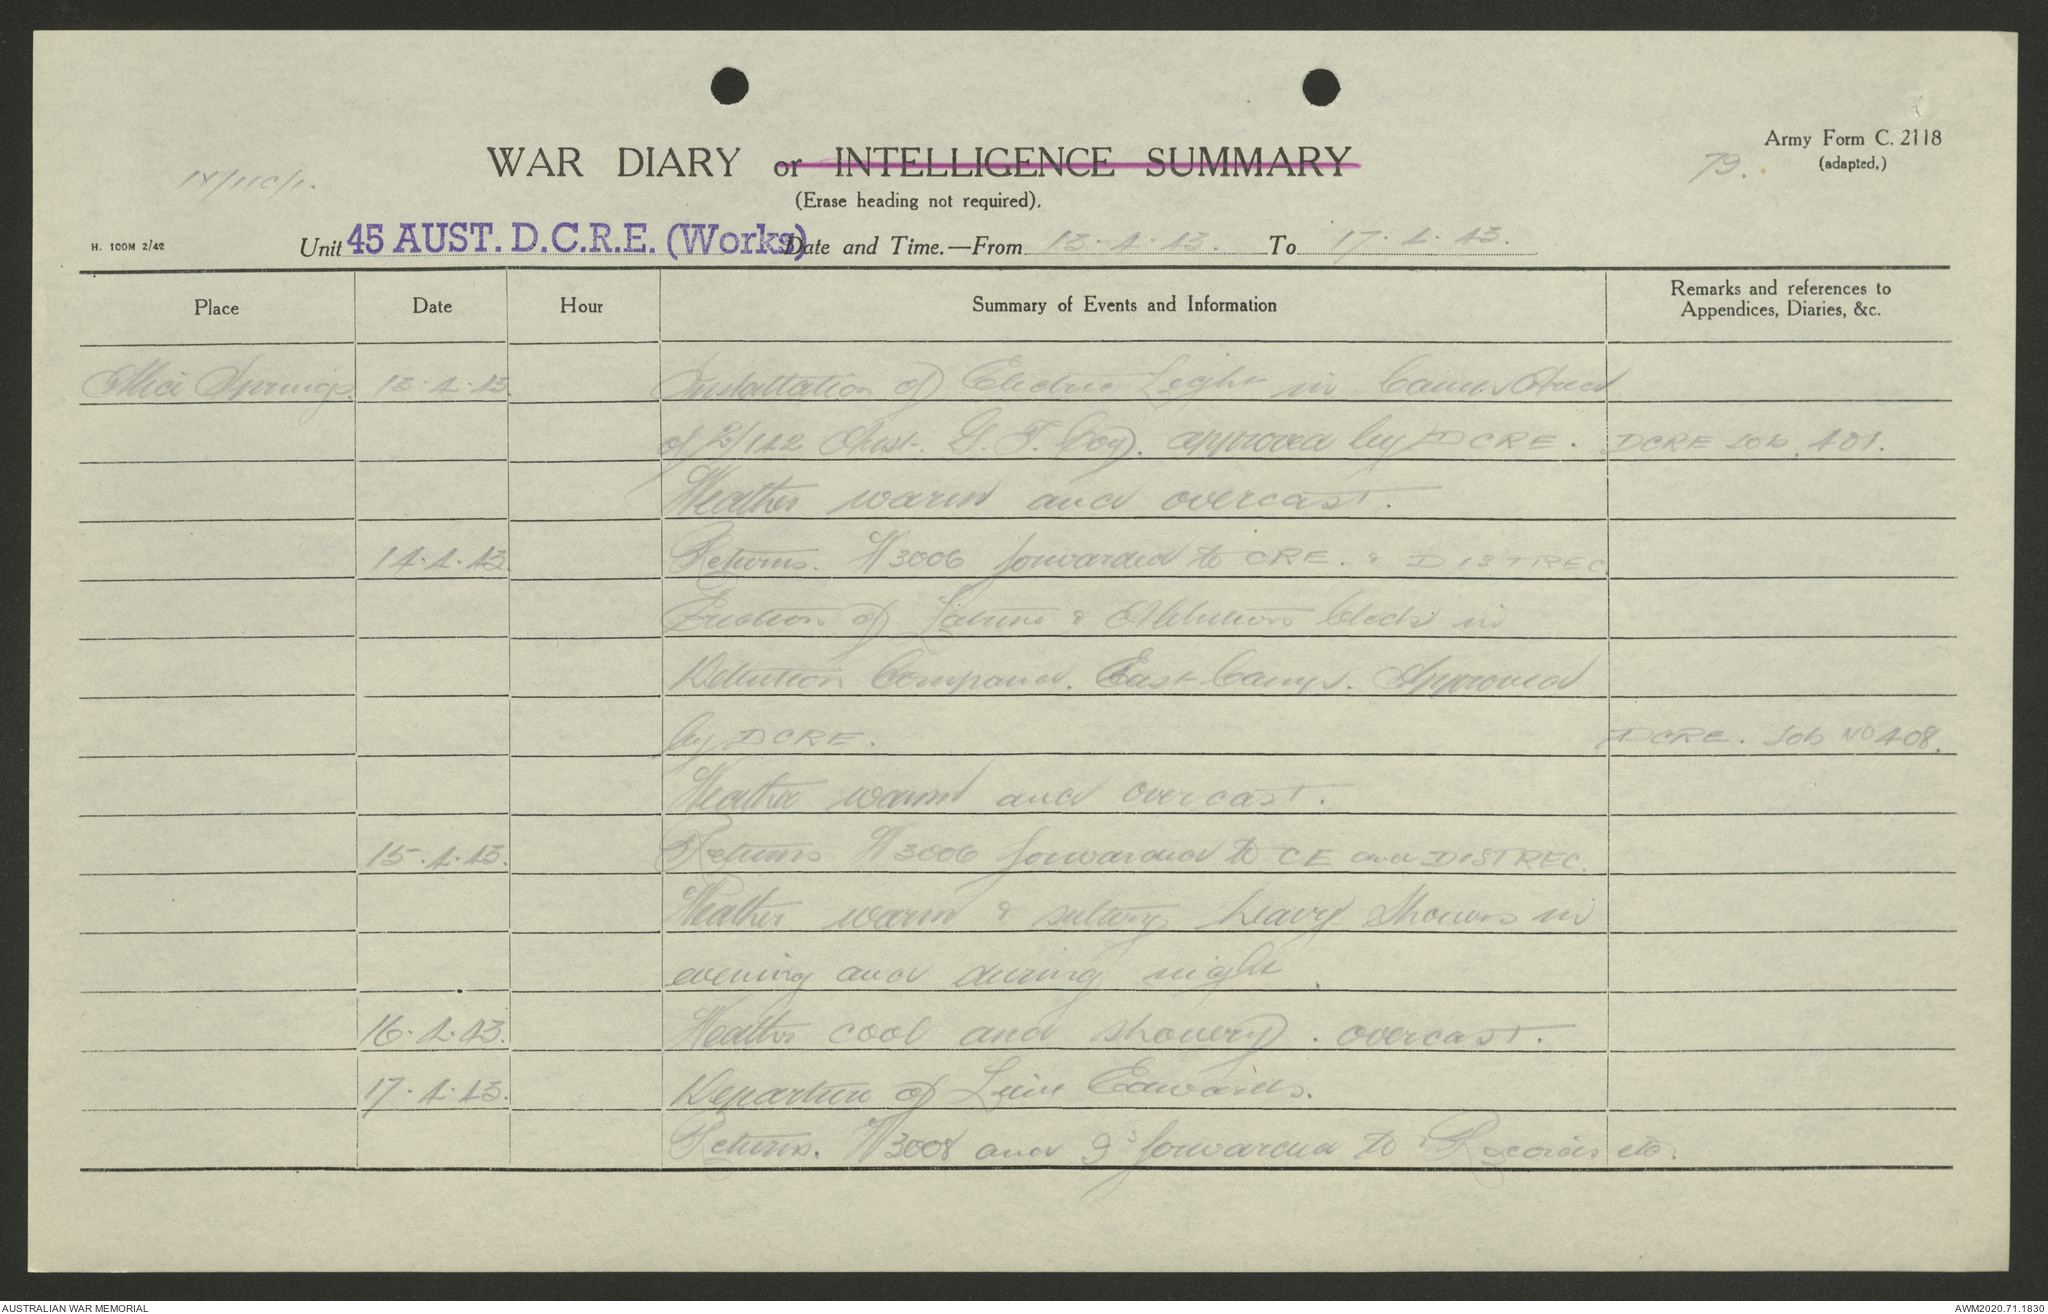 Army Form C. 2118
(adapted.)
WAR DIARY or INTELLIGENCE SUMMARY
(Erase heading not required).
79.
H. 100M 2/42
Unit 45 AUST. D.C.R.E. (Works) Date and Time.—From 13-4-43. To 17.4.43.
Place Date Hour Summary of Events and Information Remarks and references to Appendices, Diaries, &c.
Alice Springs 13.4.43 Installation of Electric Light in Camp Area
of 2/142 Aust. G. T. Coy. approved by DCRE. DCRE Job 401.
Weather warm and overcast.
14.4.43. Returns. W3006 forwarded to CRE. & DISTREC
Erection of Latrine & Ablution block in
Detention Compound. East Camp. Approved
by DCRE. DCRE. Job No 408.
Weather warm and overcast.
15.4.43. Returns W3006 forwarded to CE and DISTREC.
Weather warm & sultry heavy showers in
evening and during night.
16.4.43. Weather cool and showery. overcast.
17.4.43. Departure of Lieut Edwards.
Returns. W3008 and 9 forwarded to Records etc.
AUSTRALIAN WAR MEMORIAL
AWM2020.71.1830